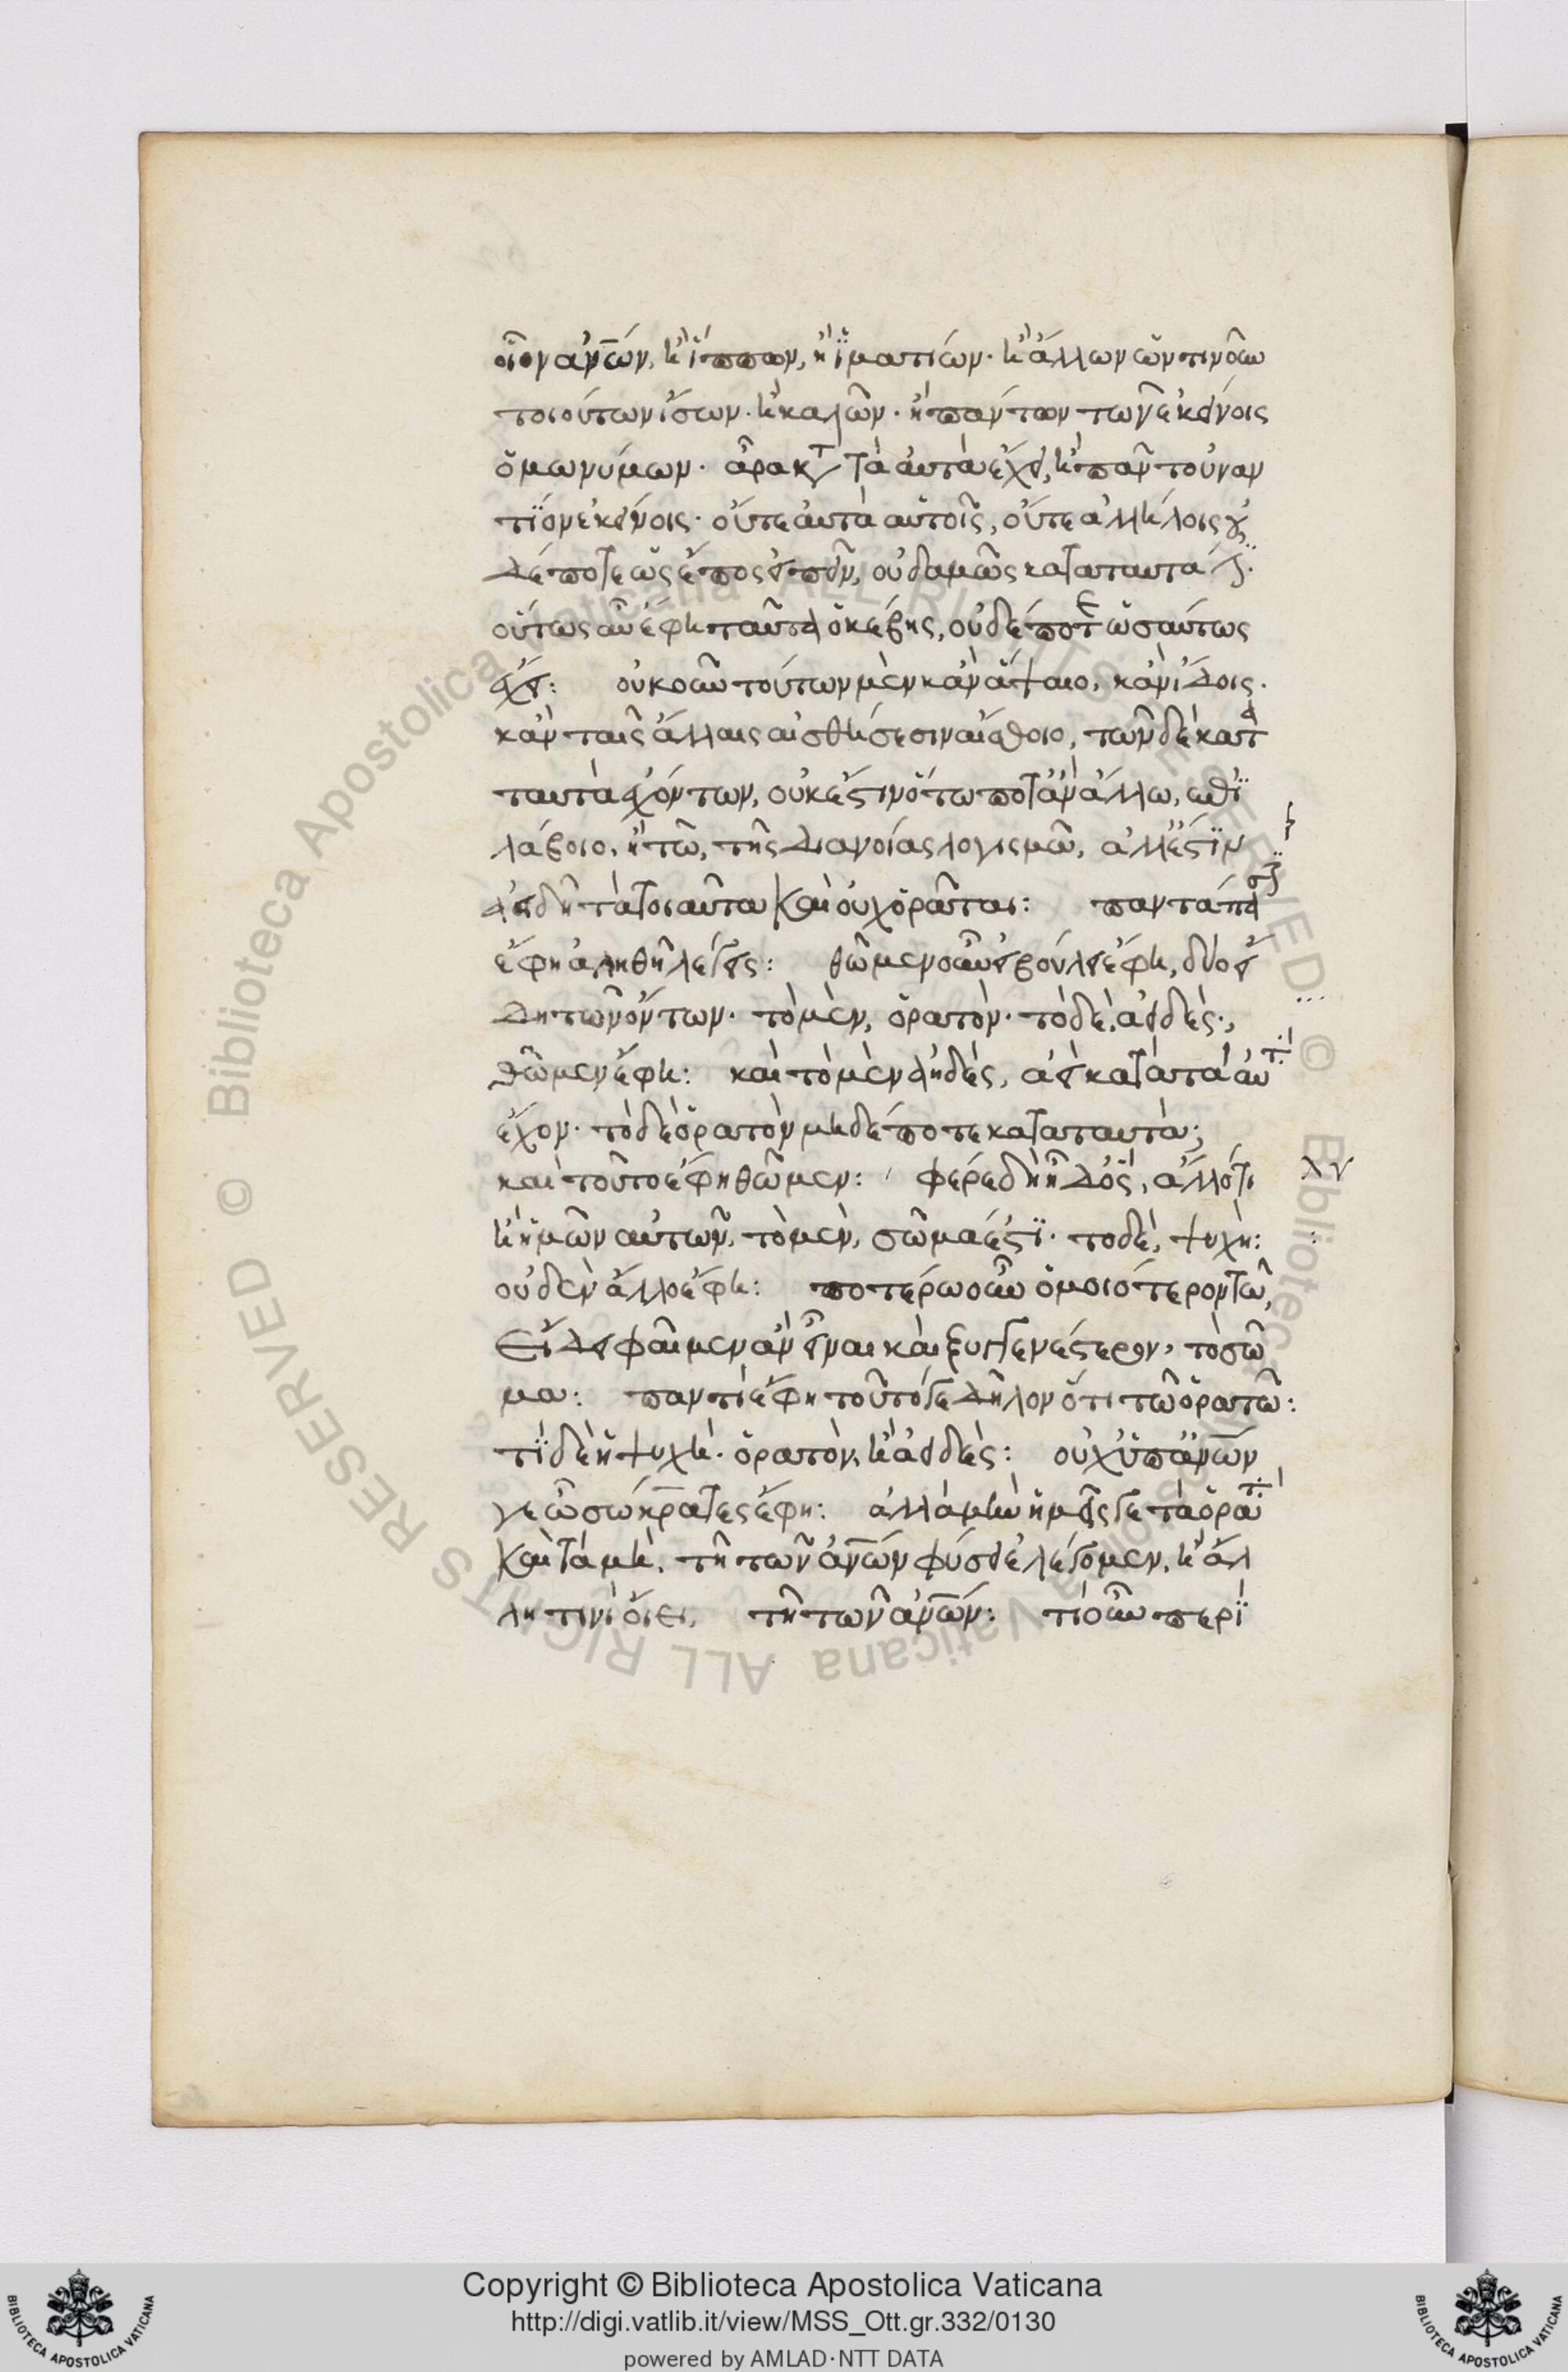 οἷον ἀν̅ων, ἢ ἵππων, ἢ ἱματίων· ἢ ἄλλων ὡντινοῦν
τοιούτων ἴσων· ἢ καλῶν· ἢ πάντων τῶν ἐκείνοις
ὁμωνύμων· ἆρα κατ τὰ ἀυτὰ ἔχει, ἢ πᾶν τοὐναν
τίον ἐκείνοις· οὔτε ἀυτὰ αὑτοῖς, οὔτε ἀλλήλοις οὐ
δέποτε ὡς ἔπος εἰπεῖν, οὐδαμῶς κατα ταυτά ἐστι·
οὕτως αὖ ἔφη ταῦτα ὁ κέβης, οὐδέποτε ὡσαύτως
ἔχει: οὐκοῦν τούτων μὲν κἂν ἅψαιο, κἂν ἴδοις·
κἂν ταῖς ἄλλαις αἰσθήσεσιν αἴσθοιο, τῶν δὲ κατα
ταυτὰ ἐχόντων, οὐκ ἔστιν ὅτω ποτ ἂν ἄλλω, ἐπι
λάβοιο, ἢ τῶ, τῆς διανοίας λογισμῶ, ἀλλ ἔστιν
ἀειδῆ τὰ τοιαῦτα καὶ οὐχ ὁρᾶται: παντάπασιν
ἔφη ἀληθῆ λέγεις: θῶμεν οὖν εἰ βούλει ἔφη, δύο εἴ
δη τῶν ὄντων· τὸ μὲν, ὁρατόν· τὸ δὲ, ἀειδές·,
θῶμεν ἔφη: καὶ τὸ μὲν ἀηδὲς, ἀεὶ κατὰ τὰ αὐτὰ
ἔχον· τὸ δὲ ὁρατὸν μηδέποτε κατα ταυτά;
καὶ τοῦτο ἔφη θῶμεν: φέρε δὴ ἦ δὅς, ἄλλό τι
ἢ ἡμῶν αὐτῶν, τὸ μὲν, σῶμά ἐστι· το δὲ, ψυχὴ:
οὐδὲν ἄλλο ἔφη: ποτέρω οὖν ὁμοιότερον τῶ,
εἴδει φαῖμεν ἂν εἶναι καὶ ξυγγενέστερον, τὸ σῶ
μα: παντὶ ἔφη τοῦτό γε δῆλον ὅτι τῶ ὁρατῶ:
τί δὲ ἡ ψυχὴ· ὁρατὸν, ἢ ἀειδές: οὐχ ὑπ ἀν̅ων
γε ὦ σώκρατες ἔφη: ἀλλὰ μὴν ἡμεῖς γε τὰ ὁρατὰ
καὶ τὰ μὴ, τῆ τῶν ἀν̅ων φύσει ἐλέγομεν, ἢ ἄλ
λη τινὶ οἴει, τῆ τῶν ἀν̅ων: τί οὖν περὶ